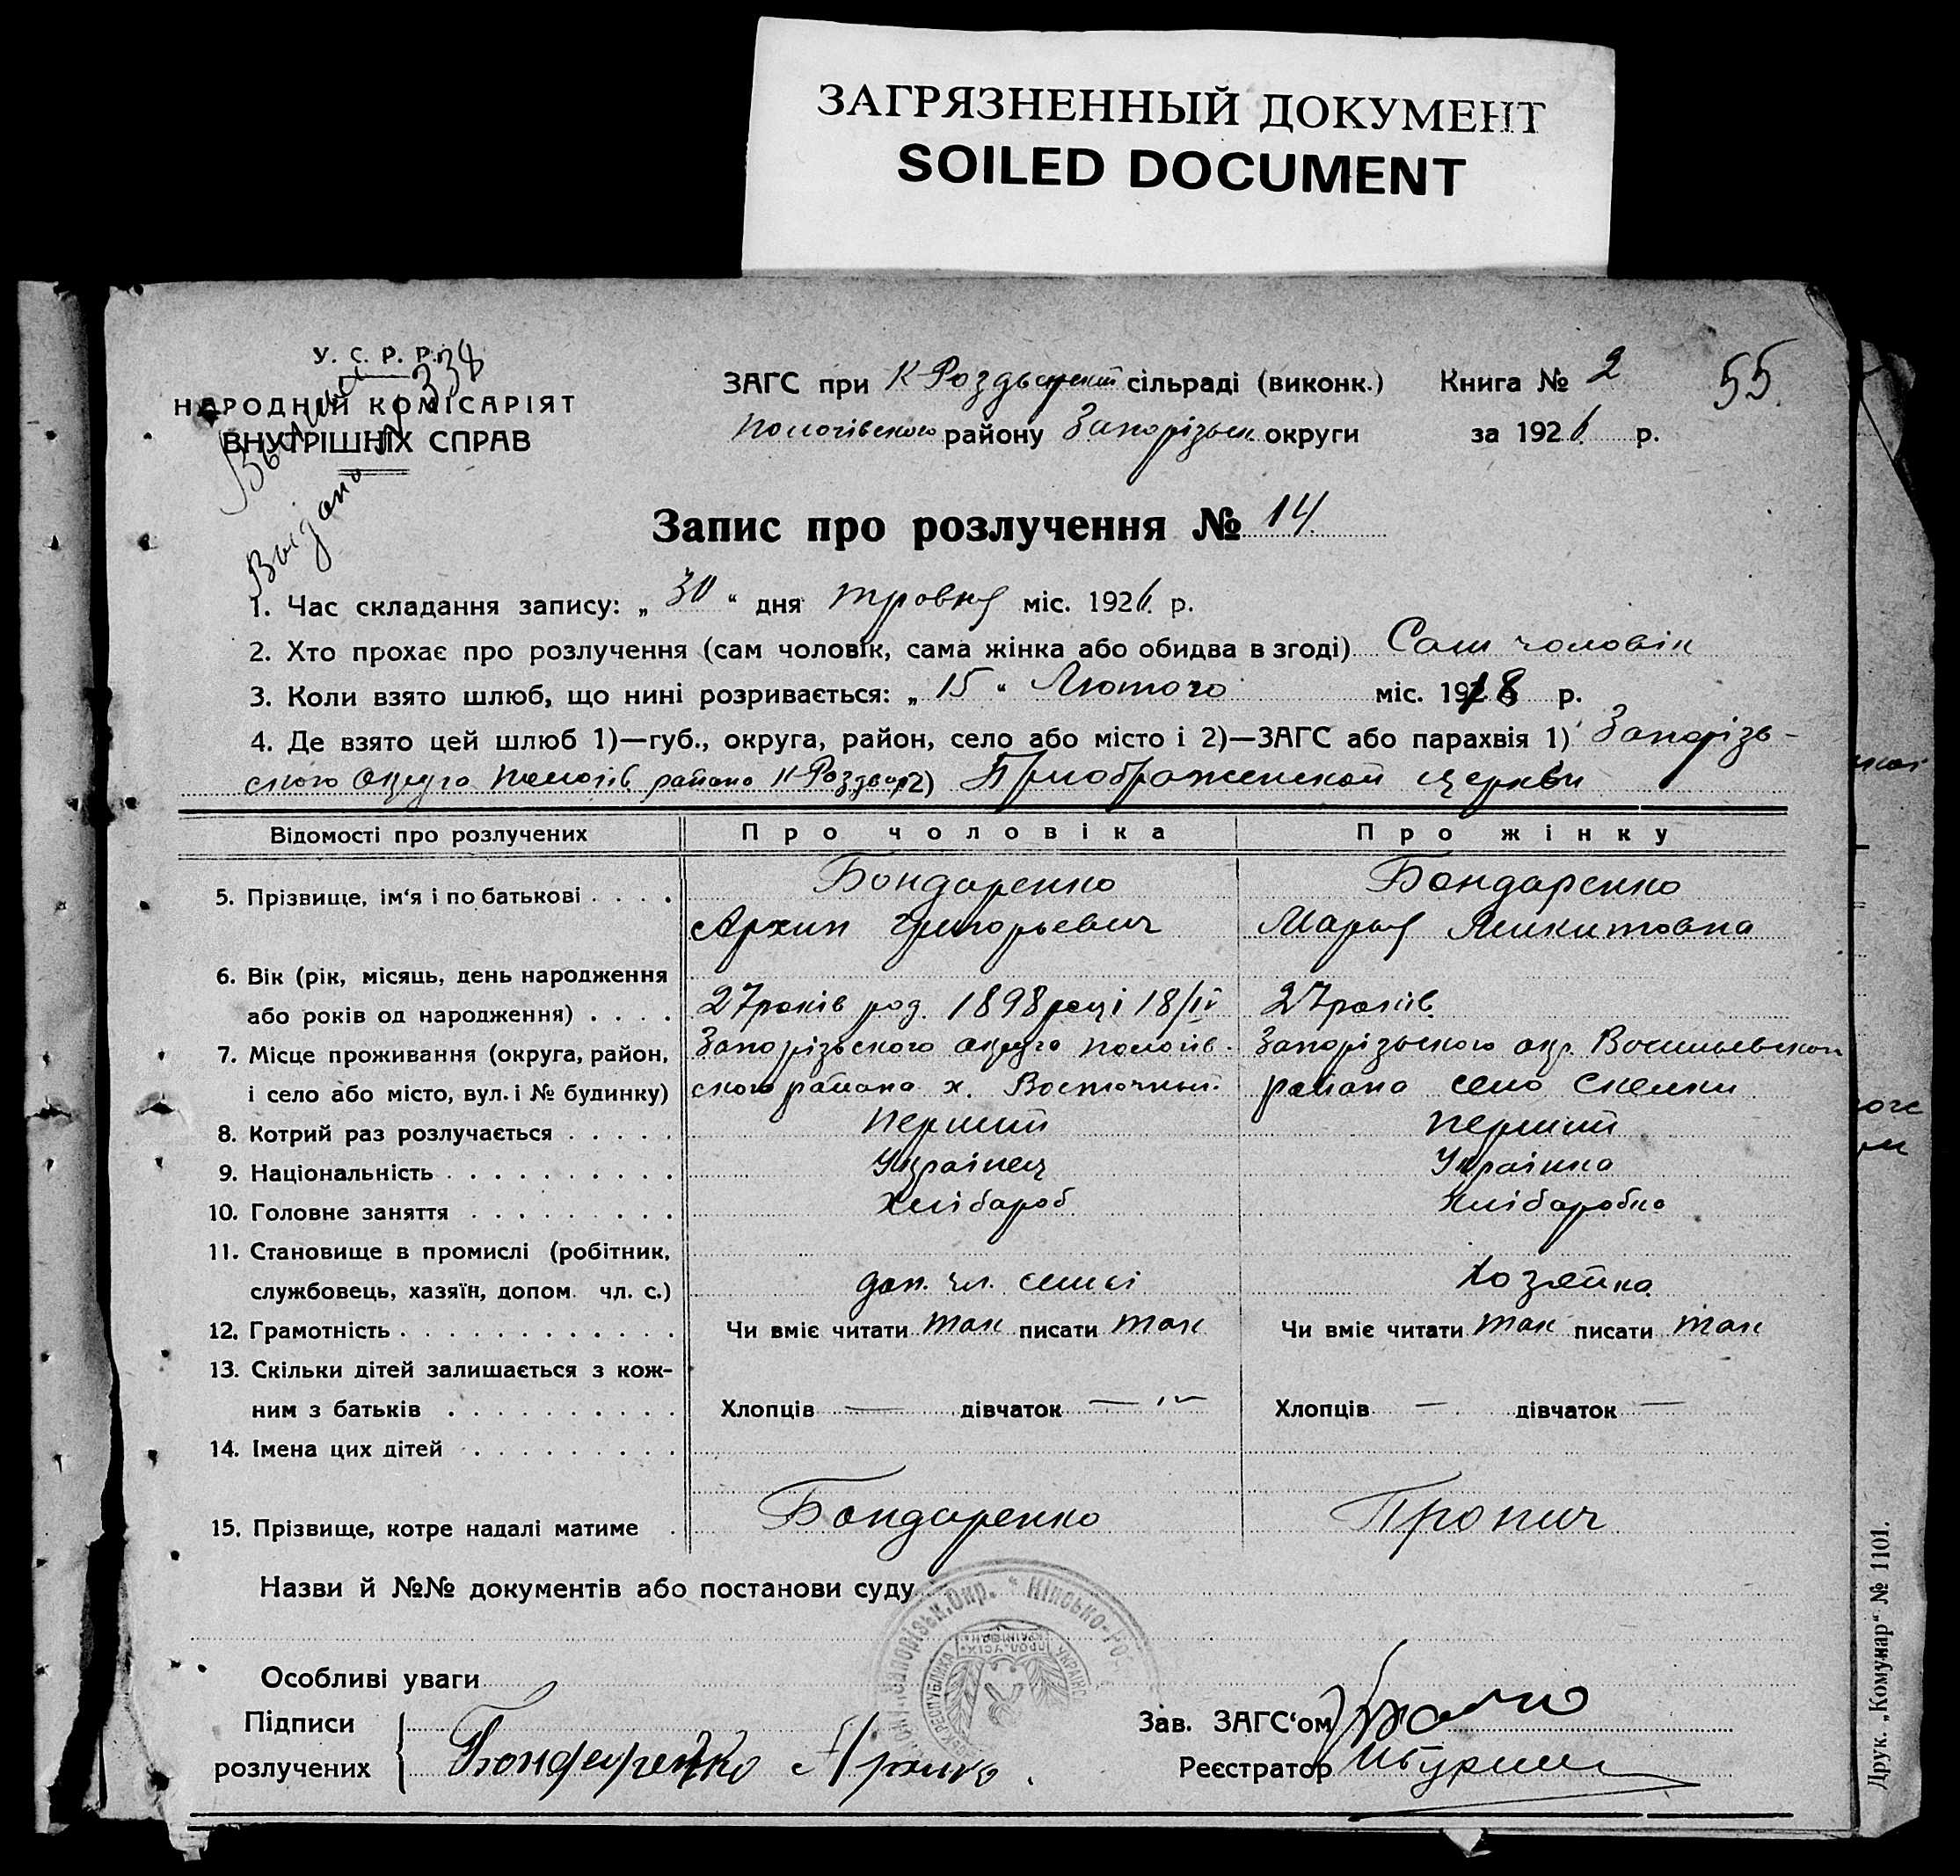 ЗАГРЯЗНЕННЫЙ ДОКУМЕНТ
SOILED DOCUMENT
У. С. Р. Р.
НАРОДНІЙ КОМІСАРІЯТ
ВНУТРІШНІХ СПРАВ
338
ЗАГС при К Роздорській сільраді (виконк.) Книга № 2 55
Пологівського району Запорізьк округи за 1926 р.
Запис про розлучення № 14
1. Час складання запису: „ 30 “ дня травня міс. 1926 р.
2. Хто прохає про розлучення (сам чоловік, сама жінка або обидва в згоді) Сам чоловік
3. Коли взято шлюб, що нині розривається: „ 15 “ Лютого міс. 1918 р.
4. Де взято цей шлюб 1)—губ., округа, район, село або місто і 2)—ЗАГС або парахвія 1) Запорізь-
ского округа Пологів района К Роздор 2) Приображенской церкви
Відомості про розлучених Про чоловіка Про жінку
5. Прізвище, ім‘я і по батькові . . . . Бондаренко Бондаренко
Архип Григорьевич Марья Микитовна
6. Вік (рік, місяць, день народження
або років од народження) . . . . 27 років род. 1898 році 18/IV 27 років
7. Місце проживання (округа, район, Запорізьского округа Пологів- Запорізьского окр. Васильевском
і село або місто, вул. і № будинку) ского района х. Восточный района село Скельки
8. Котрий раз розлучається . . . . . Перший Перший
9. Національність . . . . . . . . . . Українец Українка
10. Головне заняття . . . . . . . . . Хлібароб Хлібаробка
11. Становище в промислі (робітник,
службовець, хазяїн, допом. чл. с.) доп. чл. семьї Хозяйка
12. Грамотність . . . . . . . . . . . . Чи вміє читати так писати так Чи вміє читати так писати так
13. Скільки дітей залишається з кож-
ним з батьків . . . . . . . . . . Хлопців — дівчаток — Хлопців — дівчаток —
14. Імена цих дітей . . . . . . . . .
15. Прізвище, котре надалі матиме . Бондаренко Пропич
Назви й №№ документів або постанови суду
Особливі уваги
Підписи Зав. ЗАГС‘ом
розлучених Бондаренко Реєстратор
Друк. „Комунар“ № 1101.